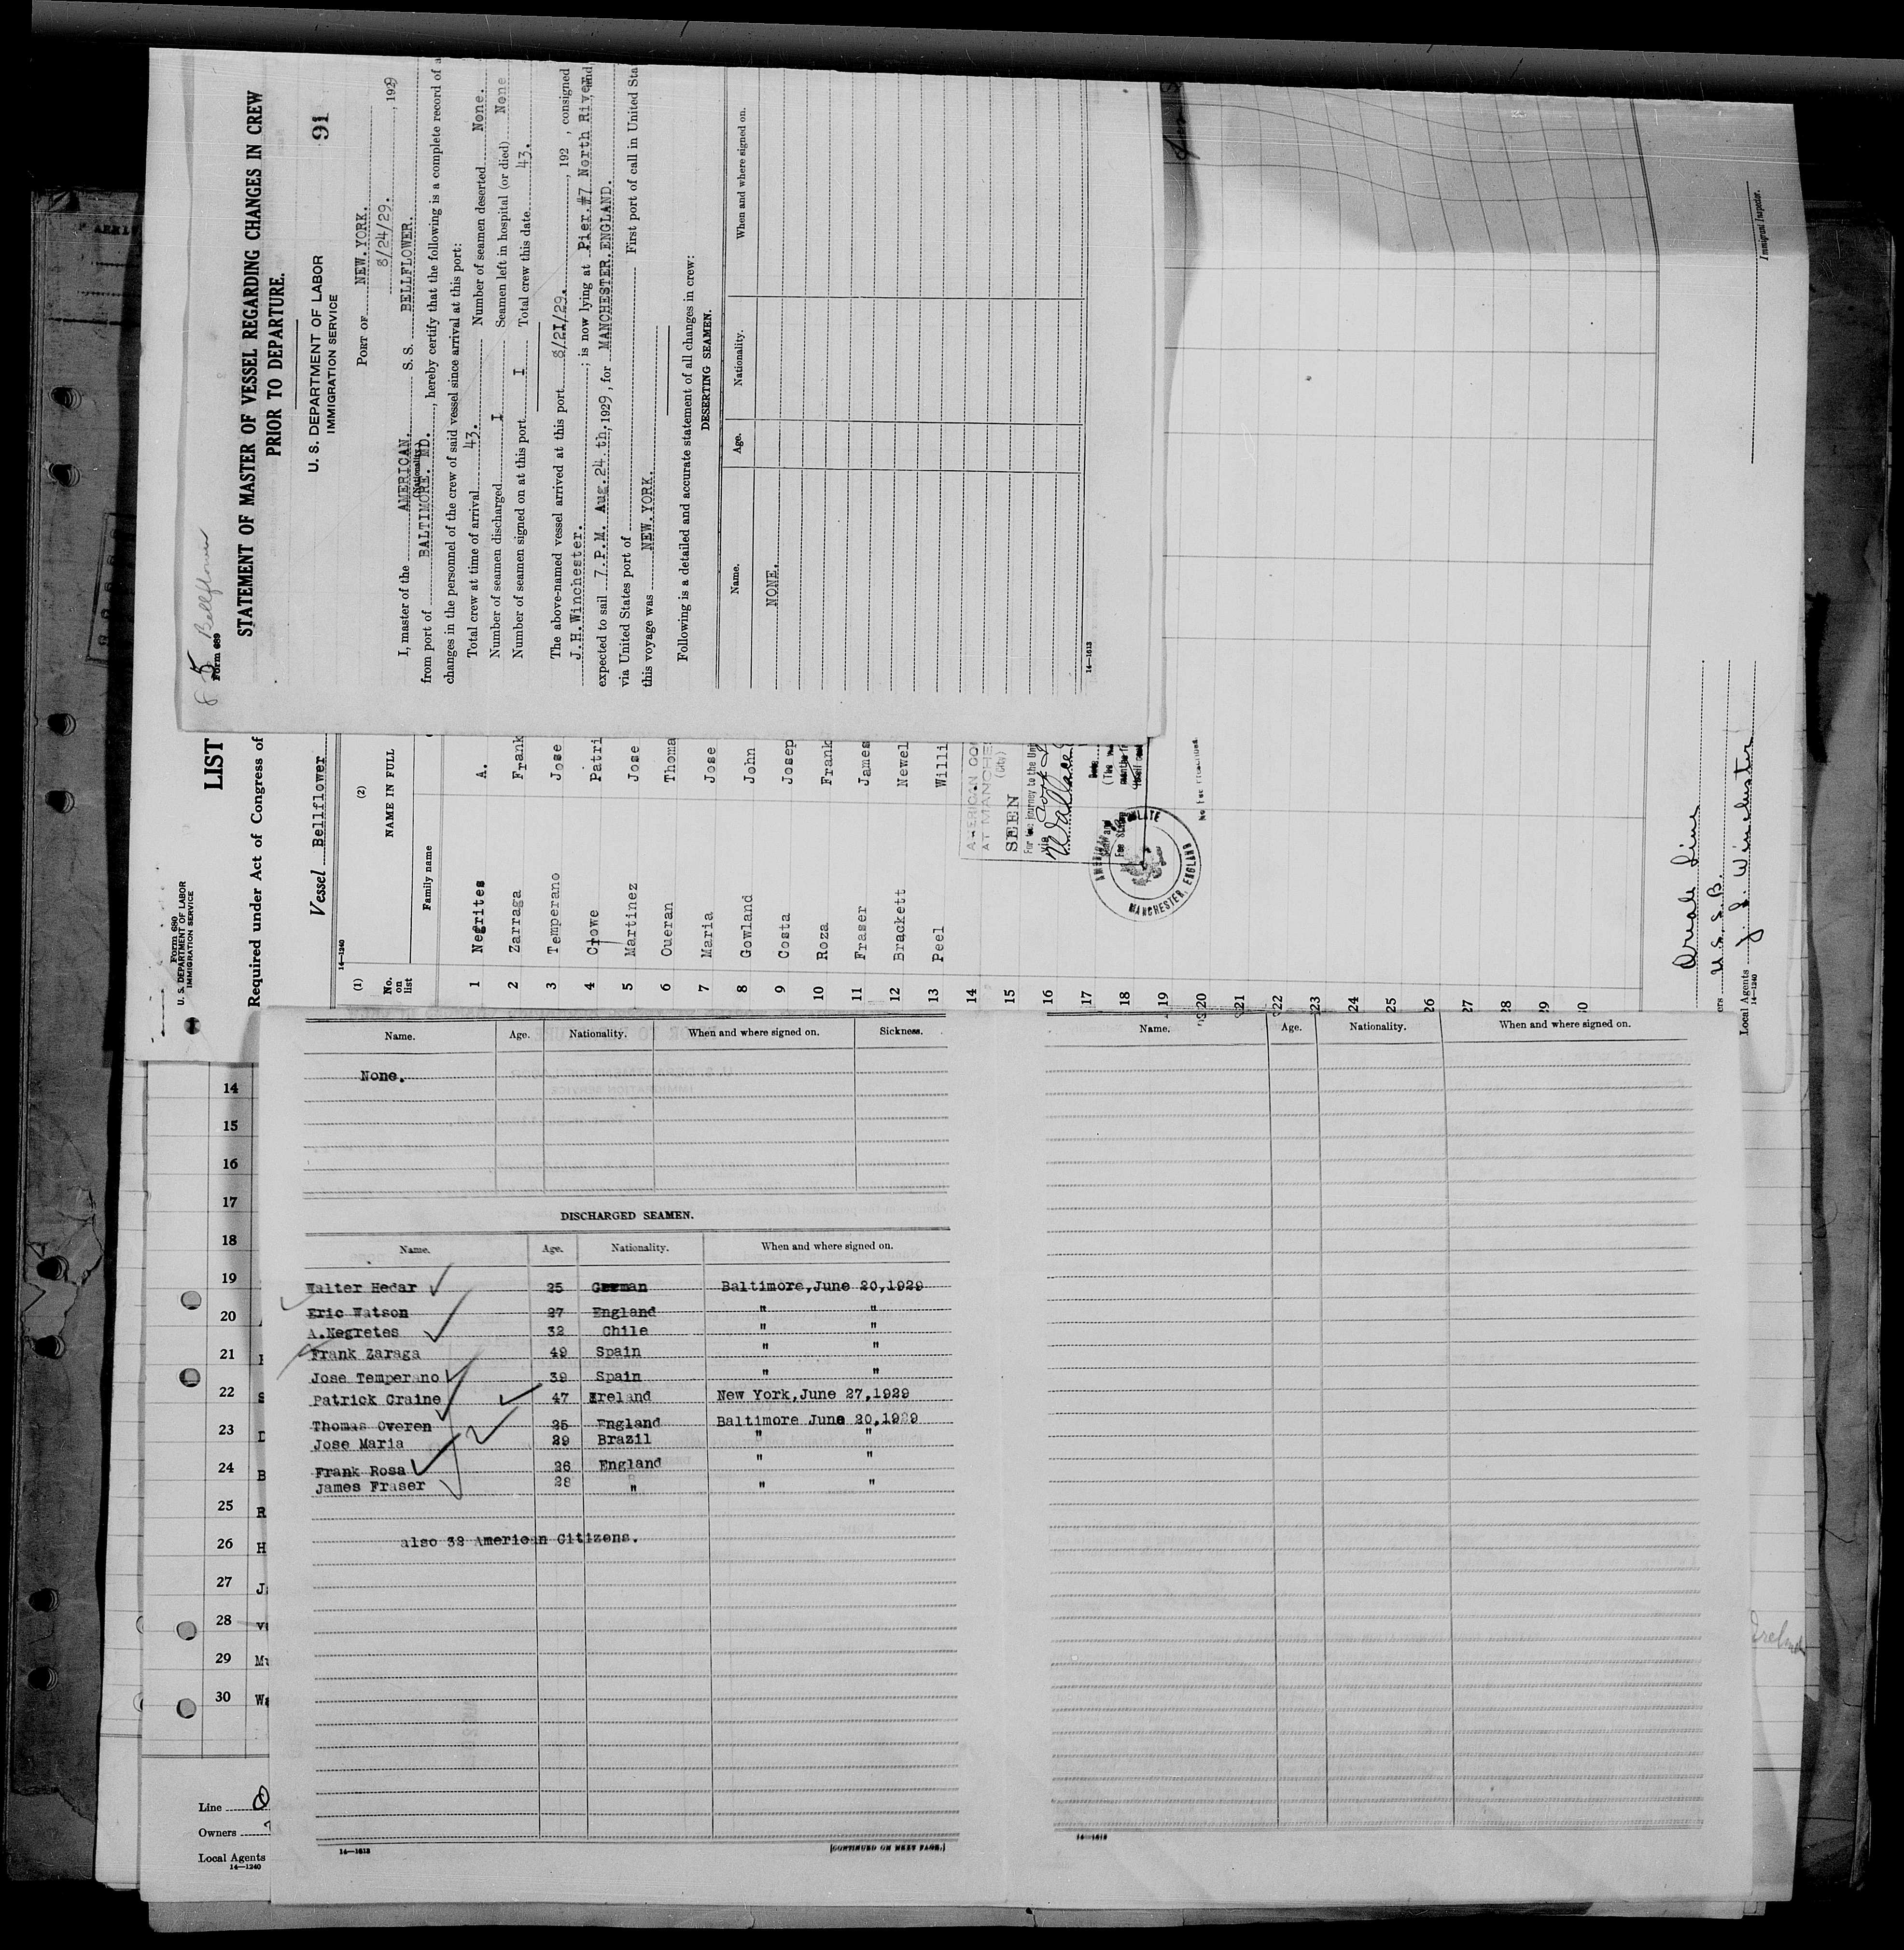 8 5 Bellflower
Form 689
STATEMENT OF MASTER OF VESSEL REGARDING CHANGES IN CREW
PRIOR TO DEPARTURE.
U. S. DEPARTMENT OF LABOR
IMMIGRATION SERVICE
91
PORT OF NEW.YORK.
8/24/29. , 1929
I, master of the AMERICAN. S. S. BELLFLOWER.
(Nationality)
from port of BALTIMORE. MD. , hereby certify that the following is a complete record of a
changes in the personnel of the crew of said vessel since arrival at this port:
Total crew at time of arrival 43. Number of seamen deserted None.
Number of seamen discharged I Seamen left in hospital (or died) None
Number of seamen signed on at this port I Total crew this date 43.
The above-named vessel arrived at this port 8/21/29. , 192 , consigned
J.H.Winchester. ; is now lying at Pier.#7 North River, and
expected to sail 7.P.M. Aug.24.th, 1929, for MANCHESTER.ENGLAND.
via United States port of First port of call in United Sta
this voyage was NEW.YORK.
Following is a detailed and accurate statement of all changes in crew:
DESERTING SEAMEN.
Name. Age. Nationality. When and where signed on.
NONE.
14—1613
Form 680
U. S. DEPARTMENT OF LABOR
IMMIGRATION SERVICE
LIST
Required under Act of Congress of
Vessel Bellflower
14—1240
(1) (2)
No. on list NAME IN FULL
Family name
1 Negrites A.
2 Zarraga Frank
3 Temperano Jose
4 Crowe Patri
5 Martinez Jose
6 Oueran Thoma
7 Maria Jose
8 Gowland John
9 Costa Josep
10 Roza Frank
11 Fraser James
12 Brackett Newel
13 Peel Willi
14
15
16
17
18
19
20
21
22
23
24
25
26
27
28
29
30
AMERICAN CON
AT MANCHES
(City)
SEEN
For the journey to the Un
via
AMERICAN CONSULATE
MANCHESTER, ENGLAND
No Fee Prescribed.
Immigrant Inspector.
Oriole Line
ers U.S.S.B.
Local Agents J. H. Winchester
14—1240
Name. Age. Nationality. When and where signed on. Sickness.
None.
DISCHARGED SEAMEN.
Name. Age. Nationality. When and where signed on.
Walter Hedar 25 German Baltimore,June 20,1929
Eric Watson 27 England " "
A.Negretes 32 Chile " "
Frank Zaraga 49 Spain " "
Jose Temperano 39 Spain " "
Patrick Craine 47 Ireland New York,June 27,1929
Thomas Overen 25 England Baltimore June 20,1929
Jose Maria 29 Brazil " "
Frank Rosa 26 England " "
James Fraser 28 " " "
also 32 American Citizens.
14—1613 [CONTINUED ON NEXT PAGE.]
Name. Age. Nationality. When and where signed on.
14—1613
14
15
16
17
18
19
20
21
22 S
23 D
24 B
25 R
26 H
27 J
28
29 Mu
30 Wa
Line O
Owners
Local Agents
14—1240
Ireland